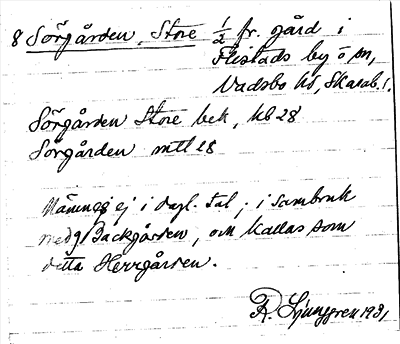 8 Sörgården, Store 1/2 fr. gård i
Flistads by o sn,
Vadsbo hd, Skarab. l.
Sörgården Store bek, hb 28
Sörgården mtl 28
Nämnes ej i dagl. tal; i sambruk
med Backgården, och kallas som
detta Herrgården.
R. Ljunggren 1931